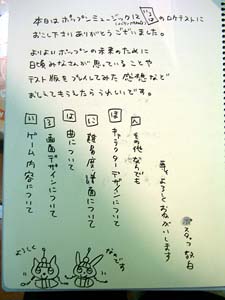 本日は ポップンミュージック12 いろはのロケテストに
おこし下さり ありがとうございました。
よりよい ポップンの未来のために
日頃みなさんが思っていることや
テスト版をプレイしてみた感想など
おしえてもらえたらうれしいです。
い ゲーム内容について
ろ 画面デザインについて
は 曲について
に 難易度・譜面について
ほ キャラクターデザインについて
へ その他なんでも
よろしくおねがいします
スタッフ 敬白
よろしく
なのです